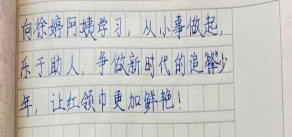 向徐婷阿姨学习，从小事做起，
乐于助人，争做新时代的追锋少
年，让红领巾更加鲜艳！